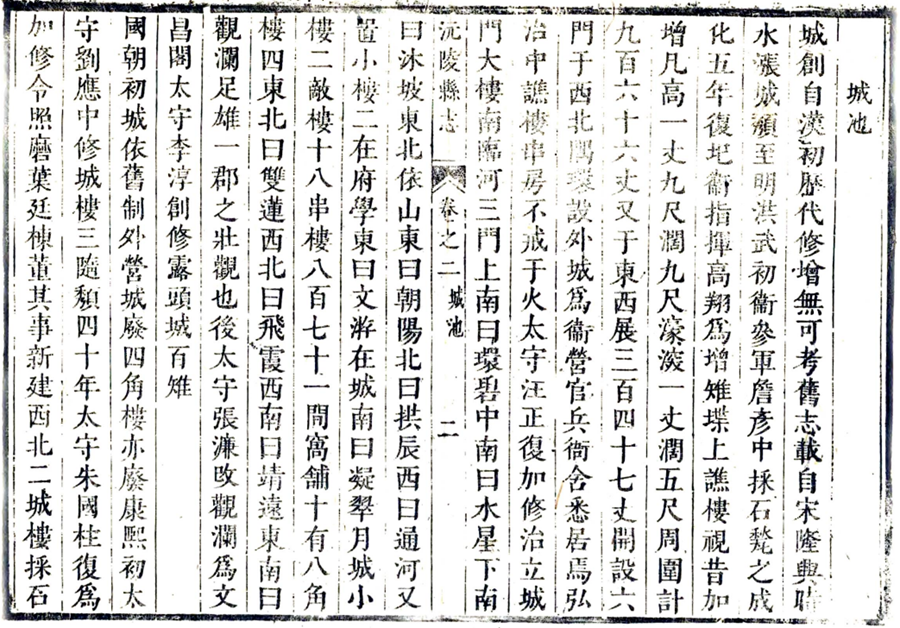 城池
城創自漢初歷代修增無可考舊志載自宋隆興時
水漲城頽至明洪武初衞參軍詹彥中採石甃之成
化五年復圮衞指揮高翔爲增雉堞上譙樓視昔加
增凡高一丈九尺濶九尺濠深一丈濶五尺周圍計
九百六十六丈又于東西展三百四十七丈開設六
門于西北隅環設外城爲衞營官兵衙舍悉居焉弘
治中譙樓串房不戒于火太守汪正復加修治立城
門大樓南臨河三門上南曰環碧中南曰水星下南
沅陵縣志 卷之二 城池 二
曰沐坡東北依山東曰朝陽北曰拱辰西曰通河又
置小樓二在府學東曰文游在城南曰凝翠月城小
樓二敵樓十八串樓八百七十一間窩舖十有八角
樓四東北曰雙蓮西北曰飛霞西南曰靖遠東南曰
觀瀾足雄一郡之壯觀也後太守張濂攺觀瀾爲文
昌閣太守李淳創修露頭城百雉
國朝初城依舊制外營城廢四角樓亦廢康熙初太
守劉應中修城樓三隨頽四十年太守朱國柱復爲
加修令照磨葉廷棟董其事新建西北二城樓採石